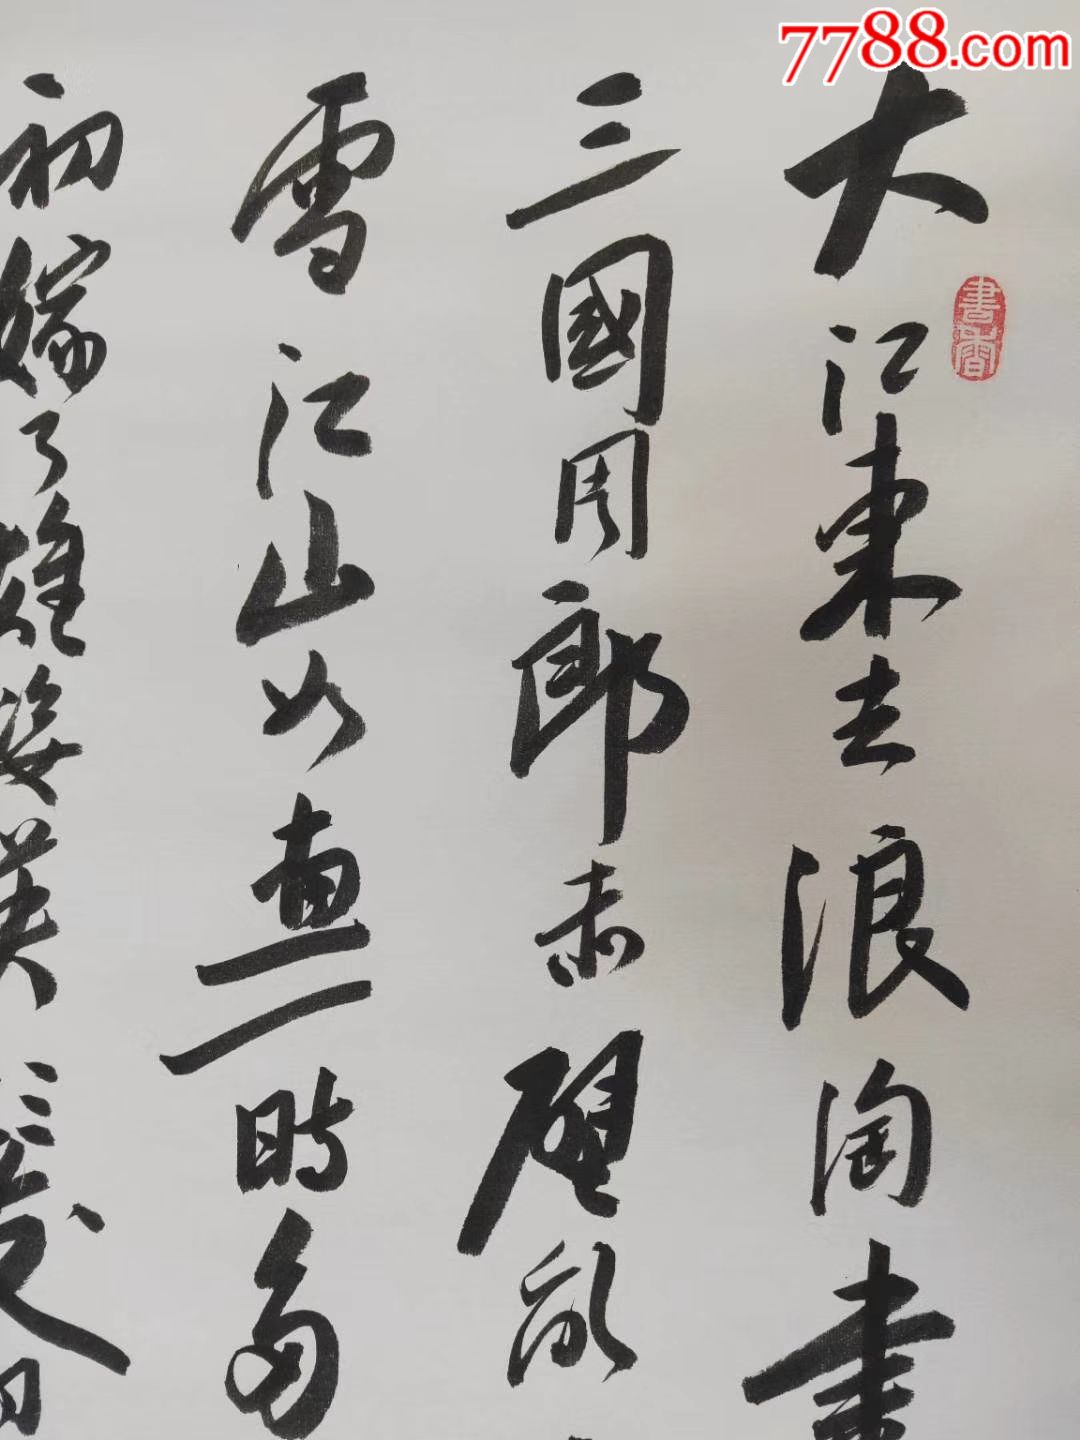 7788.com
書香
大江東去浪淘盡
三國周郎赤壁亂
雪江山如畫一時多
初嫁了雄姿英發